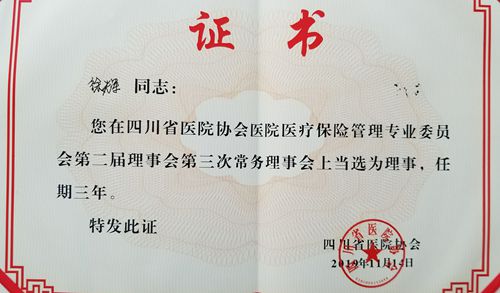 证书
同志：
您在四川省医院协会医院医疗保险管理专业委员
会第二届理事会第三次常务理事会上当选为理事，任
期三年。
特发此证
四川省医院协会
2019年11月14日